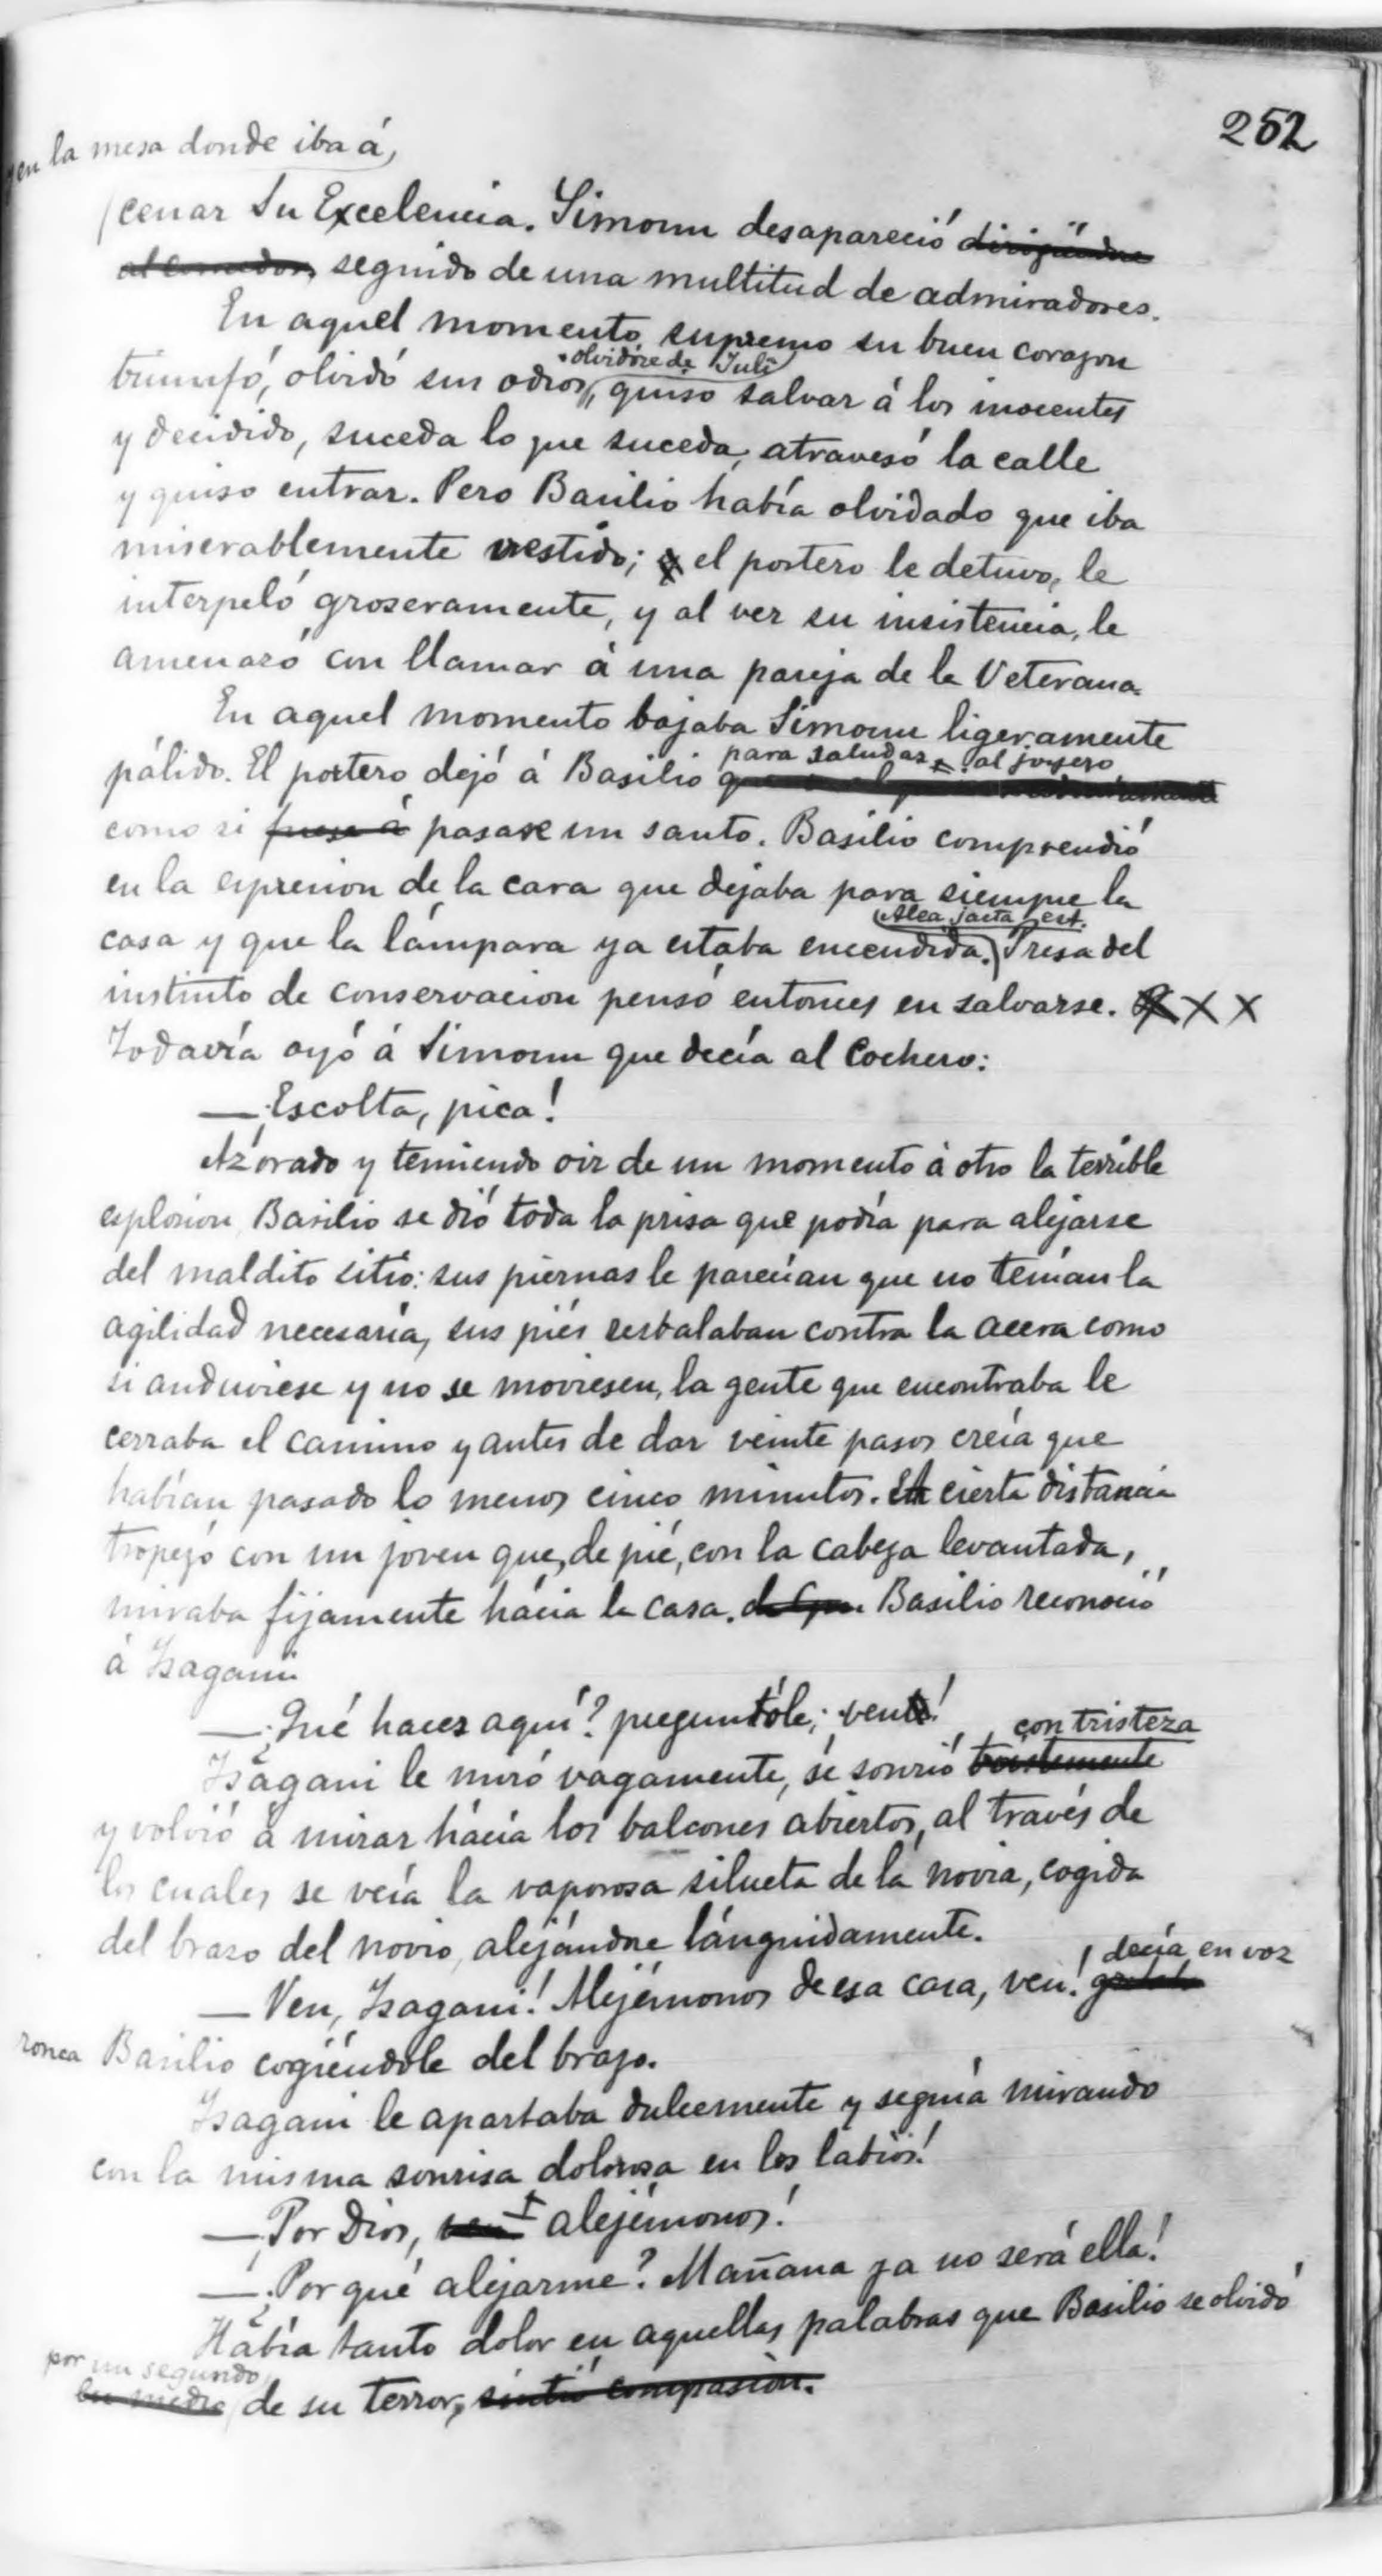 252
en la mesa donde iba á
cenar Su Excelencia. Simoun desapareció dirigiéndose
al comedor, seguido de una multitud de admiradores.
En aquel momento supremo su buen corazon
olvidóse de Juli
triunfó, olvidó sus odios, quiso salvar á los inocentes
y decidido, suceda lo que suceda, atravesó la calle
y quiso entrar. Pero Basilio había olvidado que iba
miserablemente vestido; el portero le detuvo, le
interpeló groseramente, y al ver su insistencia, le
amenazó con llamar á una pareja de la Veterana.
En aquel momento bajaba Simoun ligeramente
para saludar al joyero
pálido. El portero dejó á Basilio
como si fuese á pasase un santo. Basilio comprendió
en la espresion de la cara que dejaba para siempre la
Alea jacta est.
casa y que la lámpara ya estaba encendida. Presa del
instinto de conservacion pensó entonces en salvarse. X X
Todavía oyó á Simoun que decía al cochero:
—¡Escolta, pica!
Azorado y temiendo oir de un momento á otro la terrible
esplosion, Basilio se dió toda la prisa que podía para alejarse
del maldito sitio: sus piernas le parecían que no tenían la
agilidad necesaria, sus piés resbalaban contra la acera como
si anduviese y no se moviesen, la gente que encontraba le
cerraba el camino y antes de dar veinte pasos creía que
habían pasado lo menos cinco minutos. A cierta distancia
tropezó con un joven que, de pié, con la cabeza levantada,
miraba fijamente hácia la casa. Basilio reconoció
á Isagani
—¿Qué haces aquí? preguntóle; ¡vente!
con tristeza
Isagani le miró vagamente, se sonrió tristemente
y volvió á mirar hácia los balcones abiertos, al través de
los cuales se veía la vaporosa silueta de la novia, cogida
del brazo del novio, alejándose lánguidamente.
decía en voz
—Ven, Isagani! Alejémonos de esa casa, ven! gritaba
ronca Basilio cogiéndole del brazo.
Isagani le apartaba dulcemente y seguía mirando
con la misma sonrisa dolorosa en los labios!
—¡Por Dios, ven alejémonos!
—¿Por qué alejarme? Mañana ya no será ella!
Había tanto dolor en aquellas palabras que Basilio se olvidó
por un segundo
en medio de su terror, sintió compasión.